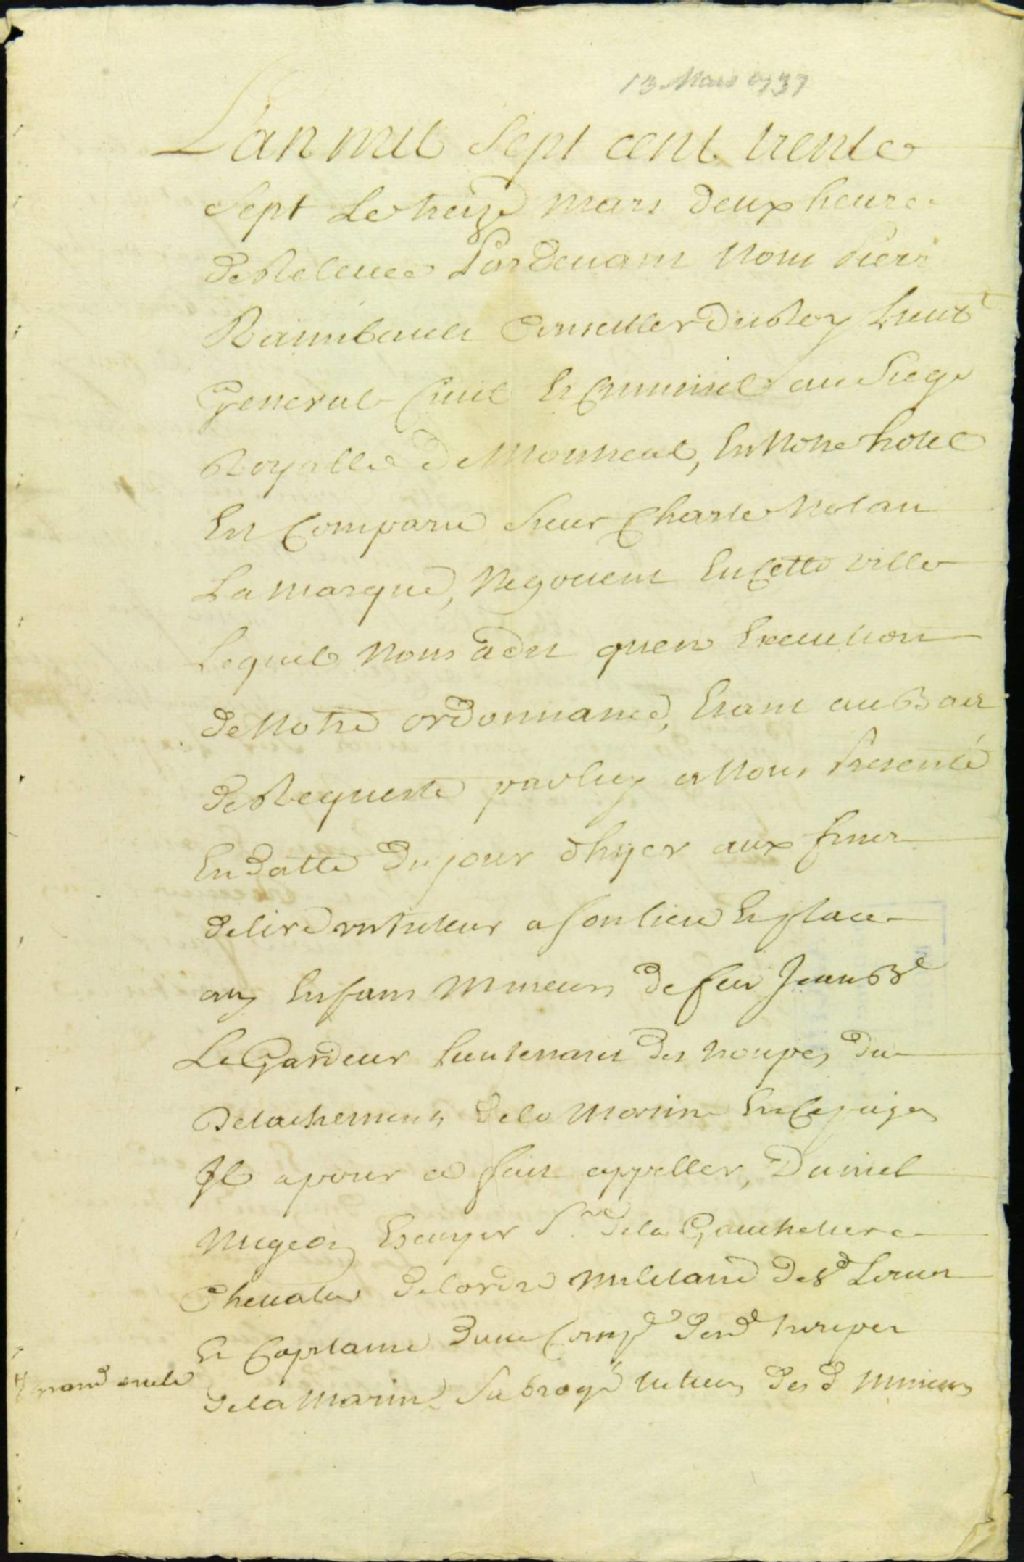 13 Mars 1737
L'an mil sept cent trente
sept le treize mars deux heures
de Relevee Pardevant Nous Pierre
Raimbault Conseiller du Roy Lieut
General Civil et Criminel au Siege
Royalle de Montreal, En Notre hotel
Est Comparu sieur Charle Nolan
La marque, Negotient En Cette ville
Lequel Nous a dit quen Execution
de Notre ordonnance, Etant au bas
de Requeste par luy a Nous Presenté
En datte du jour d'hyer aux fins
delire un tuteur a son lieu et place
aux Enfans Mineurs de feu Jean Bte
Le Gardeur Lieutenant des troupes du
Detachement de la Marine En Ce païs
Il a pour ce fait appeller, Daniel
Migeon Escuyer Sr. de la Gauchetiere
Chevalier de lordre Militaire de St Louis
Et Capitaine dune Compie desd troupes
de la Marine Subrogé tuteur desd Mineurs
grand oncle